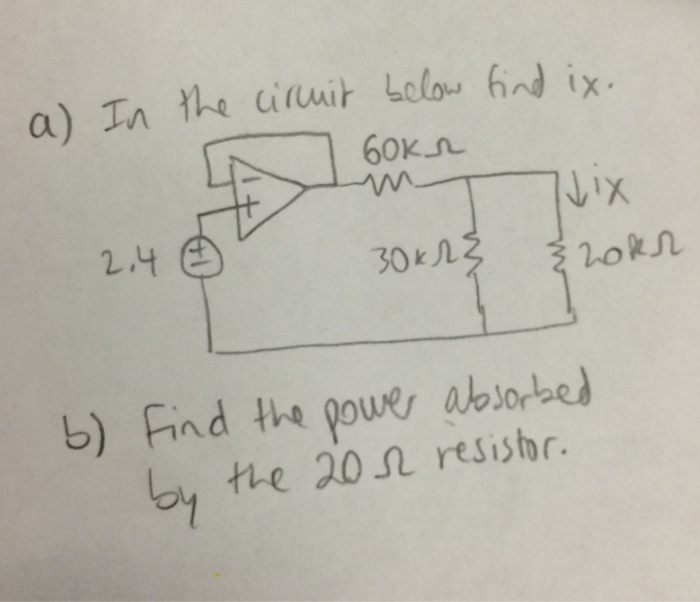 a) In the circuit below find ix.
60KΩ
↓ix
-
+
2.4
+
-
30KΩ
20KΩ
b) Find the power absorbed
by the 20 Ω resistor.